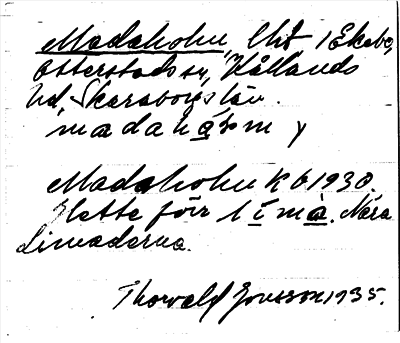 Madaholm, lht 1 Ekebo,
Otterstads sn, Kållands
hd, Skaraborgs län.
madahåḷm y
Madaholm K 6 1930.
Hette förr l ī m à. Nära
Limaderna.
Thorvald Jonsson 1935.